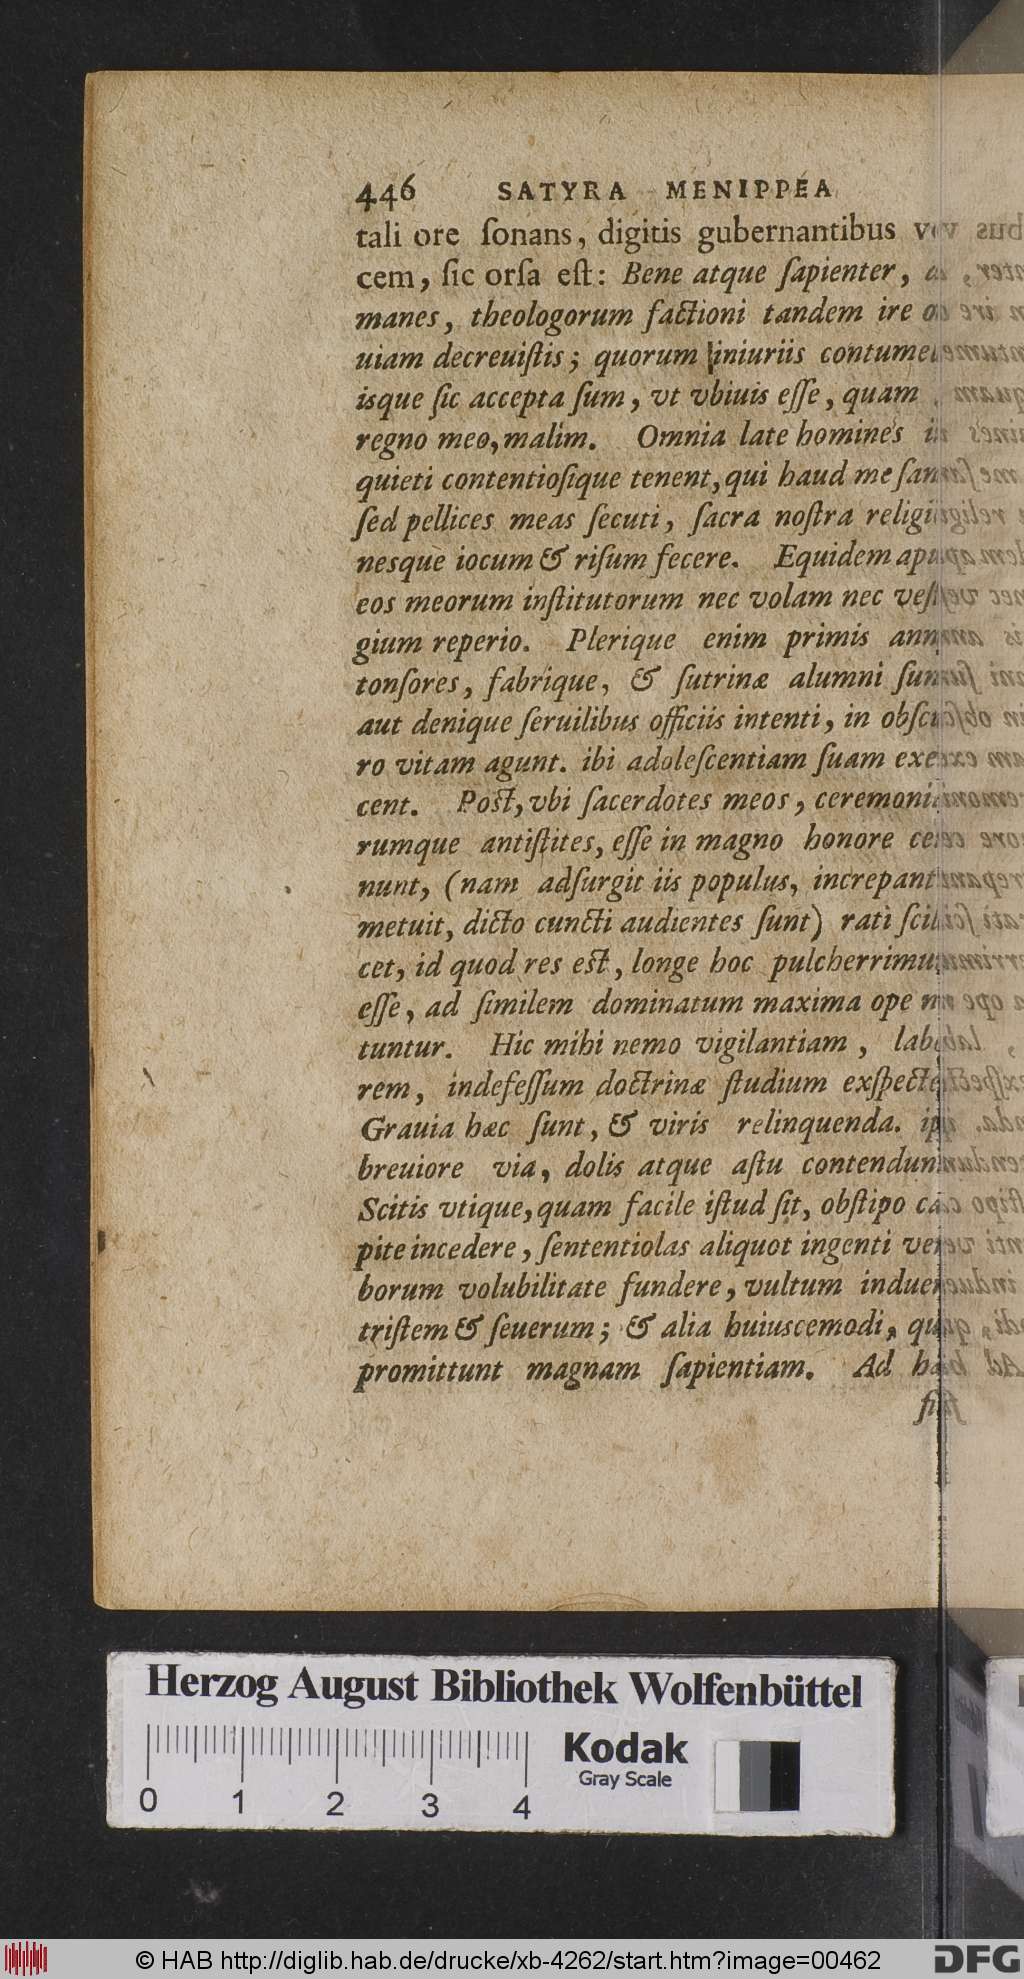 446 SATYRA MENIPPEA
tali ore ſonans, digitis gubernantibus vo
cem, ſic orſa eſt: Bene atque ſapienter,
manes, theologorum factioni tandem ire ob
uiam decreuiſtis; quorum iniuriis contumel
isque ſic accepta ſum, vt vbiuis eſſe, quam
regno meo, malim. Omnia late homines in
quieti contentioſique tenent, qui haud me ſan
ſed pellices meas ſecuti, ſacra noſtra religi
nesque iocum & riſum fecere. Equidem apu
eos meorum inſtitutorum nec volam nec veſti
gium reperio. Plerique enim primis ann
tonſores, fabrique, & ſutrinæ alumni ſun
aut denique ſeruilibus officiis intenti, in obſcu
ro vitam agunt. ibi adoleſcentiam ſuam exer
cent. Poſt, vbi ſacerdotes meos, ceremonia
rumque antiſtites, eſſe in magno honore cer
nunt, (nam adſurgit iis populus, increpant
metuit, dicto cuncti audientes ſunt) rati ſcili
cet, id quod res eſt, longe hoc pulcherrimum
eſſe, ad ſimilem dominatum maxima ope ni
tuntur. Hic mihi nemo vigilantiam, labo
rem, indefeſſum doctrinæ ſtudium exſpecte
Grauia hæc ſunt, & viris relinquenda. ipſi
breuiore via, dolis atque aſtu contendun
Scitis vtique, quam facile iſtud ſit, obſtipo ca
pite incedere, ſententiolas aliquot ingenti ver
borum volubilitate fundere, vultum induer
triſtem & ſeuerum; & alia huiuscemodi, quæ
promittunt magnam ſapientiam. Ad hæc
Herzog August Bibliothek Wolfenbüttel
Kodak
Gray Scale
0 1 2 3 4
© HAB http://diglib.hab.de/drucke/xb-4262/start.htm?image=00462
DFG